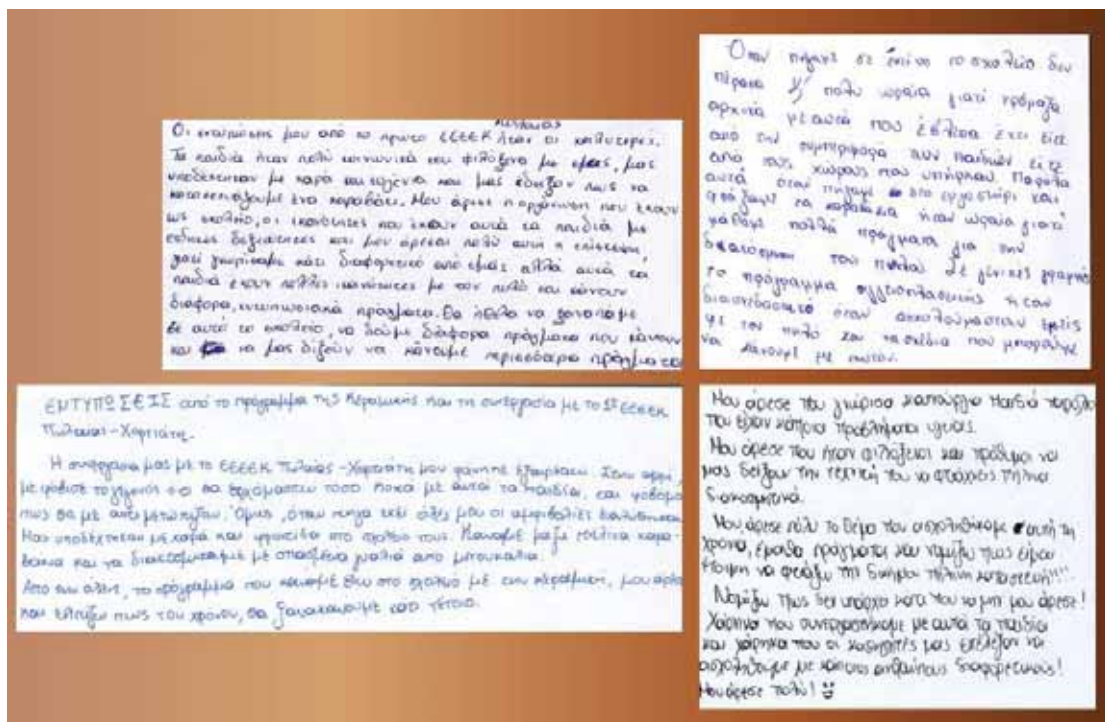 Οι εντυπώσεις μου από το πρώτο ΕΕΕΕΚ Πυλαίας ήταν οι καλύτερες.
Τα παιδιά ήταν πολύ κοινωνικά και φιλόξενα με εμάς, μας
υποδέχτηκαν με χαρά και ευγένια και μας έδειξαν πως να
κατασκευάζουμε ένα καραβάκι. Μου άρεσε η οργάνωση που έχουν
ως σχολείο, οι ικανότητες που έχουν αυτά τα παιδιά με
ειδικές δεξιότητες και μου άρεσε πολύ αυτή η επίσκεψη,
γιατί γνωρίσαμε κάτι διαφορετικό από εμάς αλλά αυτά τα
παιδιά έχουν πολλές ικανότητες με τον πηλό και κάνουν
διάφορα, εντυπωσιακά πράγματα. Θα ήθελα να ξαναπάμε
σε αυτό το σχολείο, να δούμε διάφορα πράγματα που κάνουν
και να μας δίξουν να κάνουμε περισσότερα πράγματα
Όταν πήγαμε σε εκείνο το σχολείο δεν
πέρασα πολύ ωραία γιατί τρόμαξα
αρχικά με αυτά που έβλεπα έχει είτε
από την συμπεριφορά των παιδιών είτε
από τους χώρους που υπήρχαν. Παρόλα
αυτά όταν πήγαμε στο εργαστήρι και
φτιάξαμε τα καραβάκια ήταν ωραία γιατί
μάθαμε πολλά πράγματα για την
διακόσμηση του πηλού. Σε γενικές γραμμές
το πρόγραμμα αγγειοπλαστικής ήταν
διασκεδαστικό όταν ασχολούμασταν εμείς
με τον πηλό και τα σχέδια που μπορούμε
να κάνουμε με αυτόν.
ΕΝΤΥΠΩΣΕΙΣ από το πρόγραμμα της κεραμικής και τη συνεργασία με το 1ο ΕΕΕΕΚ
Πυλαίας-Χορτιάτη.
Η συνεργασία μας με το ΕΕΕΕΚ Πυλαίας-Χορτιάτη μου φάνηκε εξαιρετική. Στην αρχή,
με φόβισε το γεγονός ότι θα ερχόμασταν τόσο κοντά με αυτά τα παιδιά, και φοβόμουν
πως θα με αντιμετωπίσουν. Όμως, όταν πήγα εκεί όλες μου οι αμφιβολίες διαλύθηκαν.
Μας υποδέχτηκαν με χαρά και στο σχολείο τους. Κάναμε μαζί πήλινα καρα-
βάκια και τα διακοσμήσαμε με σπασμένα γυαλιά από μπουκάλια.
Από την άλλη, το πρόγραμμα που κάναμε εδώ στο σχολείο με την κεραμική, μου άρεσε
και ελπίζω πως του χρόνου, θα ξανακάνουμε κάτι τέτοιο.
Μου άρεσε που γνώρισα καινούργια παιδιά παρόλο
που είχαν κάποια προβλήματα υγείας.
Μου άρεσε που ήταν φιλόξενοι και πρόθυμοι να
μας δείξουν την τεχνική του να φτιάχνεις πήλινα
διακοσμητικά.
Μου άρεσε πολύ το θέμα που ασχοληθήκαμε αυτή τη
χρονιά, έμαθα πράγματα και νομίζω πως είμαι
έτοιμη να φτιάξω τη δικιά μου πήλινη κατασκευή!!!
Νομίζω πως δεν υπάρχει κάτι που να μη μου άρεσε!
Χάρηκα που συνεργαστήκαμε με αυτά τα παιδιά
και χάρηκα που οι καθηγητές μας επέλεξαν να
ασχοληθούμε με κάποιους ανθρώπους διαφορετικούς!
Μου άρεσε πολύ!